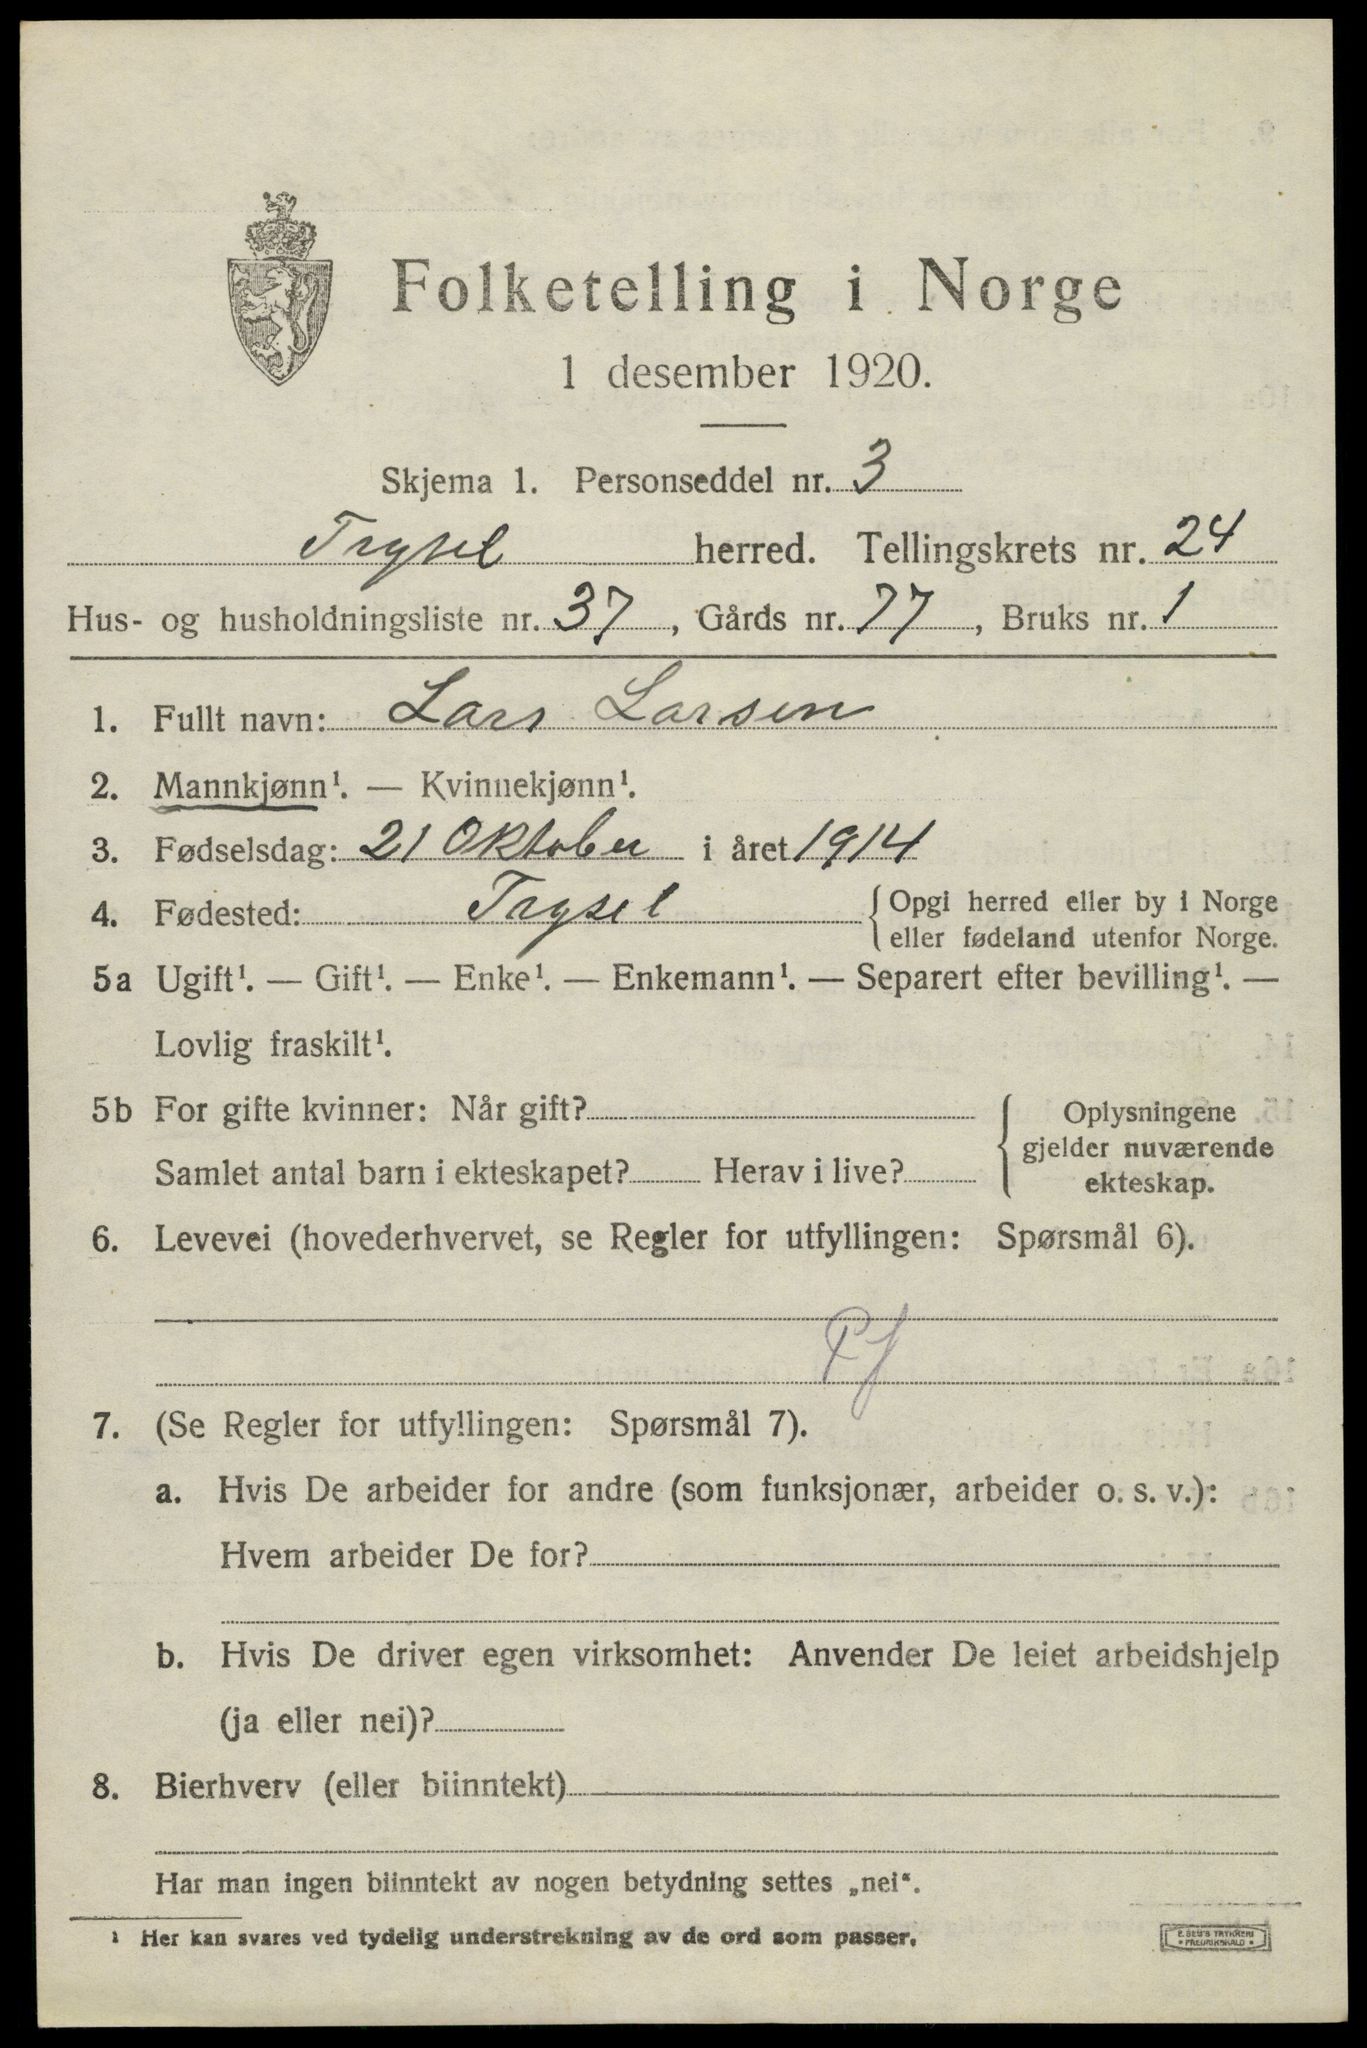 Folketelling i Norge
1 desember 1920.
Skjema 1. Personseddel nr. 3
Trysil herred. Tellingskrets nr. 24
Hus- og husholdningsliste nr. 37, Gårds nr. 77, Bruks nr. 1
1. Fullt navn: Lars Larsen
2. Mannkjønn¹. — Kvinnekjønn¹.
3. Fødselsdag: 21 Oktober i året 1914
4. Fødested: Trysil { Opgi herred eller by i Norge
eller fødeland utenfor Norge.
5a Ugift¹. — Gift¹. — Enke¹. — Enkemann¹. — Separert efter bevilling¹. —
Lovlig fraskilt¹.
5b For gifte kvinner: Når gift? { Oplysningene
gjelder nuværende
Samlet antal barn i ekteskapet? Herav i live? ekteskap.
6. Levevei (hovederhvervet, se Regler for utfyllingen: Spørsmål 6).
Pf
7. (Se Regler for utfyllingen: Spørsmål 7).
a. Hvis De arbeider for andre (som funksjonær, arbeider o. s. v.):
Hvem arbeider De for?
b. Hvis De driver egen virksomhet: Anvender De leiet arbeidshjelp
(ja eller nei)?
8. Bierhverv (eller biinntekt)
Har man ingen biinntekt av nogen betydning settes „nei“.
¹ Her kan svares ved tydelig understrekning av de ord som passer.
E. SEM'S TRYKKERI
FREDRIKSHALD